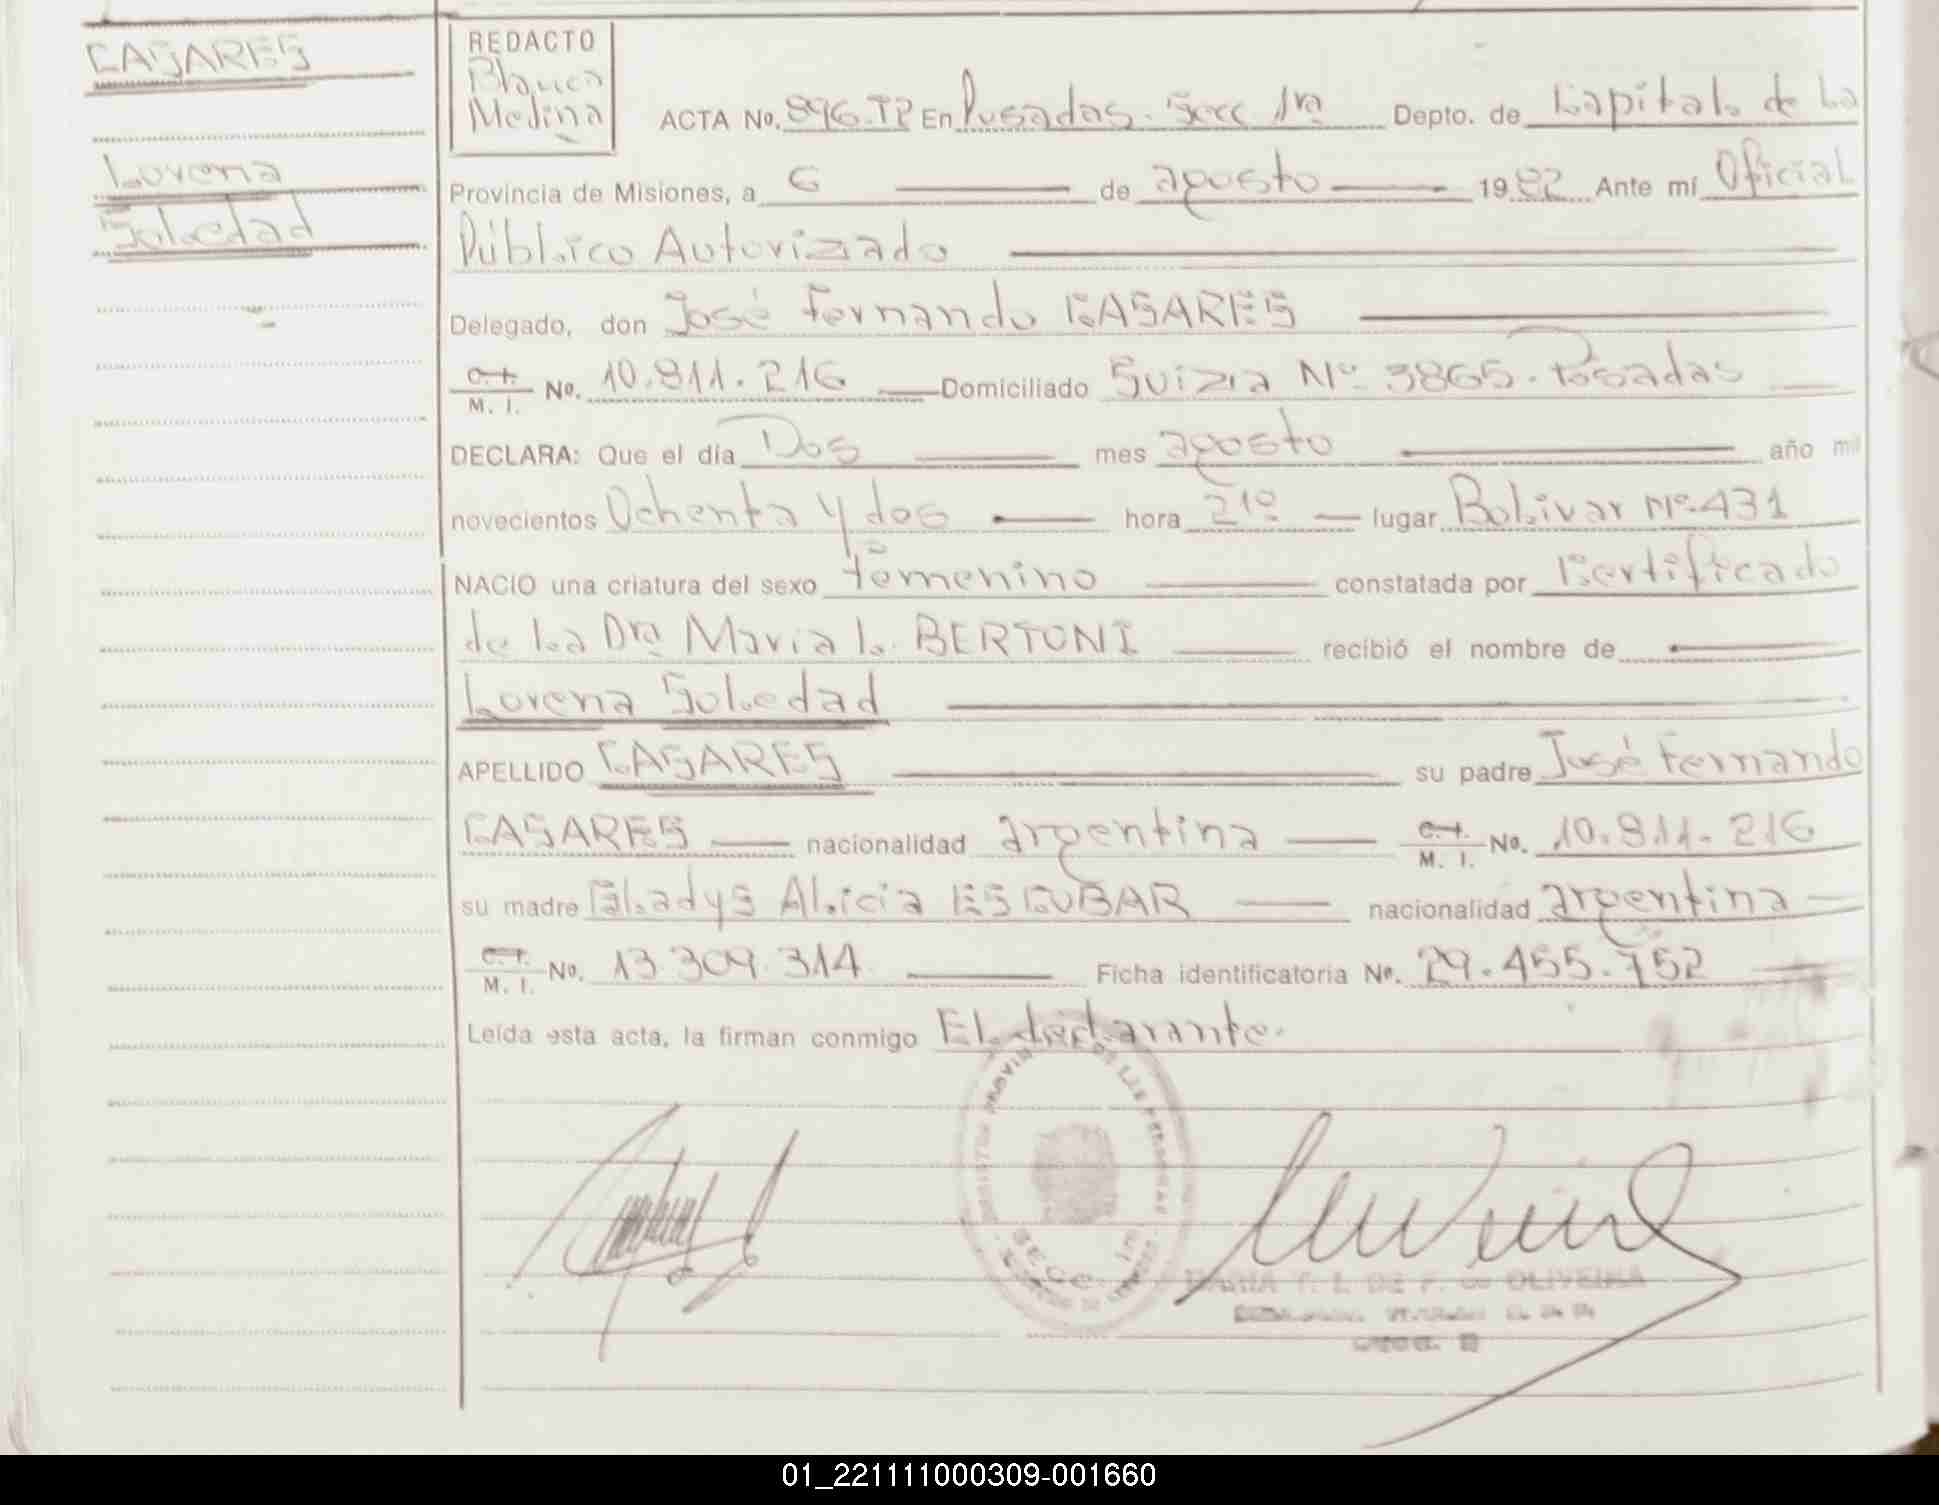 CASARES
Lorena
Soledad
REDACTO
Blanca
Medina
ACTA No. 896.TP En Posadas. Secc 1ra Depto. de Capital de la
Provincia de Misiones, a 6 de agosto 1982 Ante mí Oficial
Público Autorizado
Delegado, don José Fernando CASARES
C. I. / M. I. No. 10.811.216 Domiciliado Suiza Nº 3865. Posadas
DECLARA: Que el día Dos mes agosto año mil
novecientos Ochenta y dos hora 21º lugar Bolivar Nº 431
NACIO una criatura del sexo femenino constatada por Certificado
de la Dra Maria L. BERTONI recibió el nombre de
Lorena Soledad
APELLIDO CASARES su padre José Fernando
CASARES nacionalidad argentina C. I. / M. I. No. 10.811.216
su madre Gladys Alicia ESCOBAR nacionalidad argentina
C. I. / M. I. No. 13.309.314 Ficha identificatoria No. 29.455.752
Leída esta acta, la firman conmigo El declarante.
DE LAS PERSONAS
SECC. 1ra
MARIA T. L. DE F. de OLIVEIRA
01_221111000309-001660